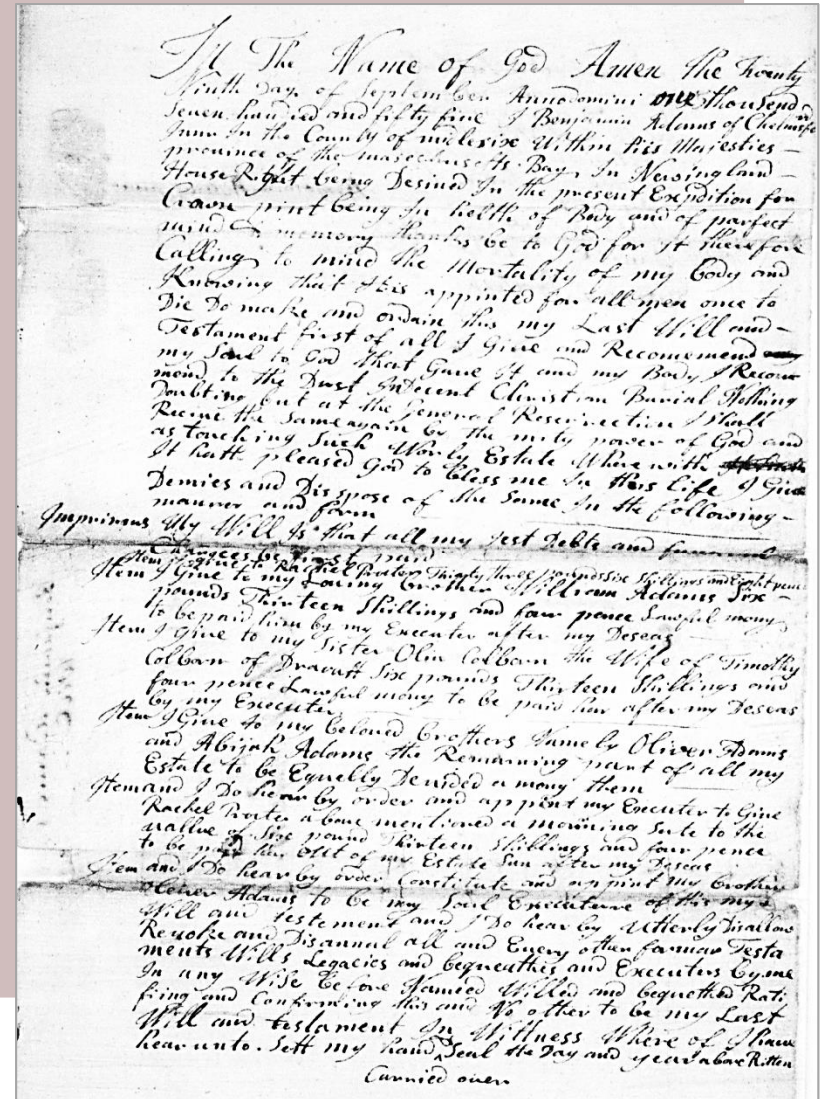 In The Name of God Amen the Twenty
Ninth Day of September Annodomini one thousend
Seven hundred and fifty five I Benjamin Adams of Chelmsfo
Junr In the County of midlesix Within his Majesties
province of the masechusetts Bay In Newingland
House Right being Desired In the present Expedition for
Crown pint being In helth of Body and of parfect
mind & memory thanks be to God for It therefore
Calling to mind the Mortality of my body and
Knowing that it is appinted for all men once to
Die Do make and ordain this my Last Will and
Testament first of all I Give and Recomemend
my Soul to God that Gave It and my Body I Recom
mend to the Dust In Decent Christian Burial Nothing
Doubting but at the General Resurrection I shall
Recive the Same again by the mity power of God and
as touching Such Worly Estate Where with
It hath pleased God to bless me In this life I Give
Demies and Disspose of the Same In the following
manner and form
Imprimus My Will Is that all my Jest Debts and funerral
Charges be first paid
Item I Give to Rachel Procter Thirty three pounds six shillings and Eight pence
Item I Give to my Loving brother William Adams Six
pounds Thirteen Shillings and four pence Lawful mony
to be paid him by my Executer after my Deseas
Item I Give to my Sister Olive Colborn the Wife of Timothy
Colborn of Dracutt Six pounds Thirteen Shillings and
four pence Lawful mony to be paid har after my Deseas
by my Executer
Item I Give to my beloved brothers Namely Oliver Adams
and Abijah Adams the Remaining part of all my
Estate to be Equelly Devided a mong them
Item and I Do hear by order and appint my Executer to Give
Rachel Procter a bove mentioned a morning Sute to the
vallue of Six pound Thirteen Shillings and four pence
to be paid har out of my Estate Sun after my Deseas
Item and I Do hear by order Constitute and appint my brother
Oliver Adams to be my Soul Executure of this my
Will and testement and I Do hear by Utterly Disallow
Revoke and Disannul all and Every other formar Testa
ments Wills Legacies and bequeathes and Executers by me
In any Wise before Named Willed and bequethed Rati
fiing and Confirming this and No other to be my Last
Will and testament In Wittness Where of I have
hear unto Sett my hand Seal the Day and year above Ritten
Carried over